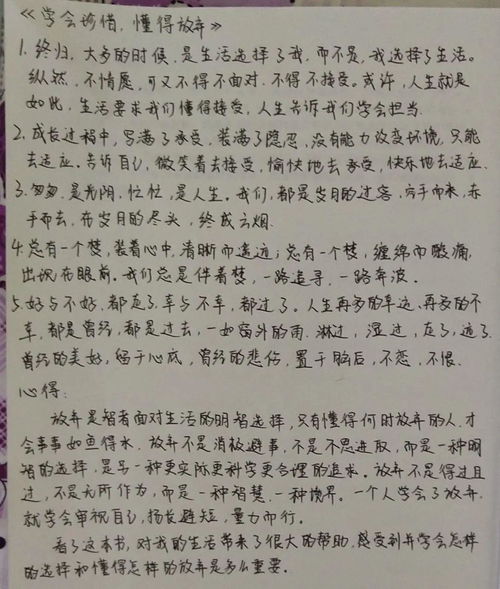 《学会珍惜,懂得放弃》
1.终归,大多的时候,是生活选择了我,而不是,我选择了生活。
纵然,不情愿,可又不得不面对,不得不接受。或许,人生就是
如此,生活要求我们懂得接受,人生告诉我们学会担当.
2.成长过程中,写满了承受,装满了隐忍,没有能力改变环境,只能
去适应。告诉自己,微笑着去接受,愉快地去承受,快乐地去适应.
3.匆匆,是光阴,忙忙,是人生。我们,都是岁月的过客,空手而来,赤
手而去,在岁月的尽头,终成云烟.
4.总有一个梦,装着心中,清晰而遥远;总有一个梦,缠绵而酸痛,
出现在眼前。我们总是伴着梦,一路追寻,一路奔波。
5.好与不好,都走了,幸与不幸,都过了。人生再多的幸运、再多的不
幸,都是曾经,都是过去,一如窗外的雨,淋过,湿过,走了,远了.
曾经的美好,留于心底,曾经的悲伤,置于脑后,不恋,不恨.
心得:
放弃是智者面对生活的明智选择,只有懂得何时放弃的人,才
会事事如鱼得水.放弃不是消极避事,不是不思进取,而是一种明
智的选择,是另一种更实际更科学更合理的追求。放弃不是得过且
过,不是无所作为,而是一种智慧,一种境界。一个人学会了放弃,
就学会审视自己,扬长避短,量力而行。
看了这本书,对我的生活带来了很大的帮助,感受到并学会怎样
的选择和懂得怎样的放弃是多么重要。